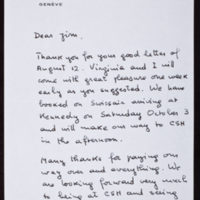 GENÈVE
Dear Jim,
Thank you for your good letter of
August 12. Virginia and I will
come with great pleasure one week
early as you suggested. We have
booked on Swissair arriving at
Kennedy on Saturday October 3
and will make our way to CSH
in the afternoon.
Many thanks for paying our
way over and everything. We
are looking forward very much
to being at CSH and seeing